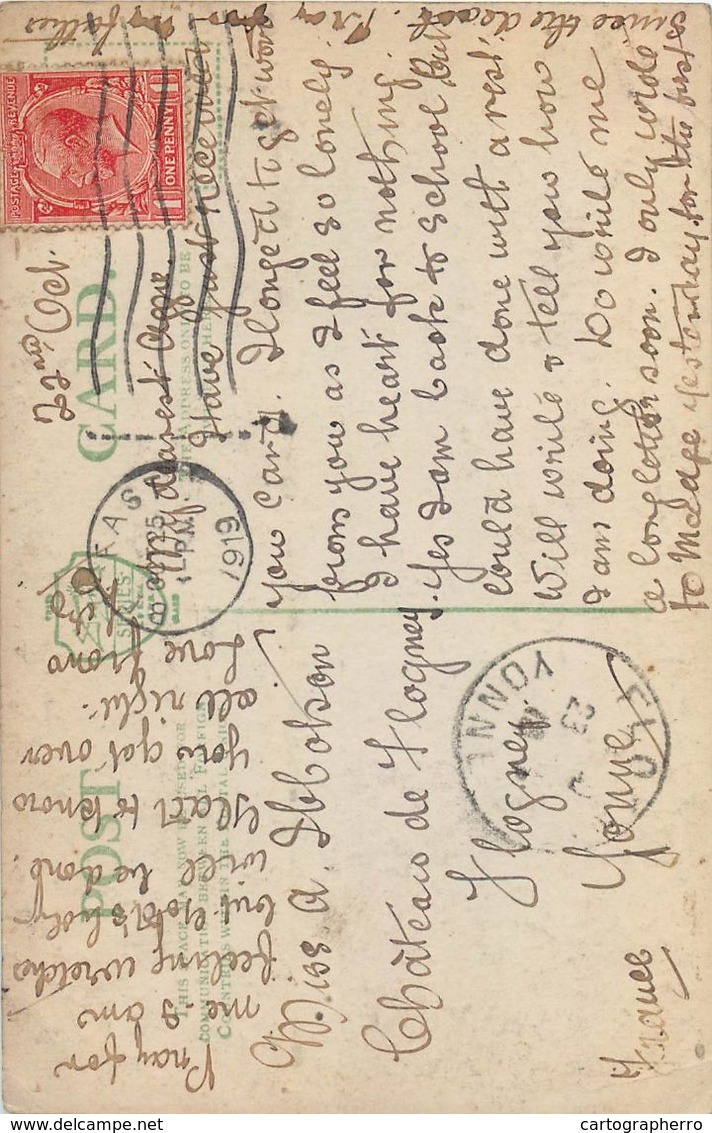 POST CARD.
THIS SPACE MAY NOW BE USED FOR
COMMUNICATION BETWEEN ALL FOREIGN
COUNTRIES WITHIN THE POSTAL UNION
THE ADDRESS ONLY TO BE
HERE
POSTAGE REVENUE
ONE PENNY
25
1919
YONNE
Oct.
My dearest Aggie.
Have just received
your card. I longed to get word
from you as I feel so lonely.
I have heart for nothing.
Yes I am back to school, but
could have done with a rest.
Will write & tell you how
I am doing. Do write me
a long letter soon. I only wrote
to Madge yesterday for the first
since the death. Pray for my father
Pray for
me I am
feeling wretched
but God's holy
will be done.
Glad to know
you got over
all right.
Love from
Miss A. Ibbotson
Château de Flogny.
Flogny.
Yonne
France
cartographerro